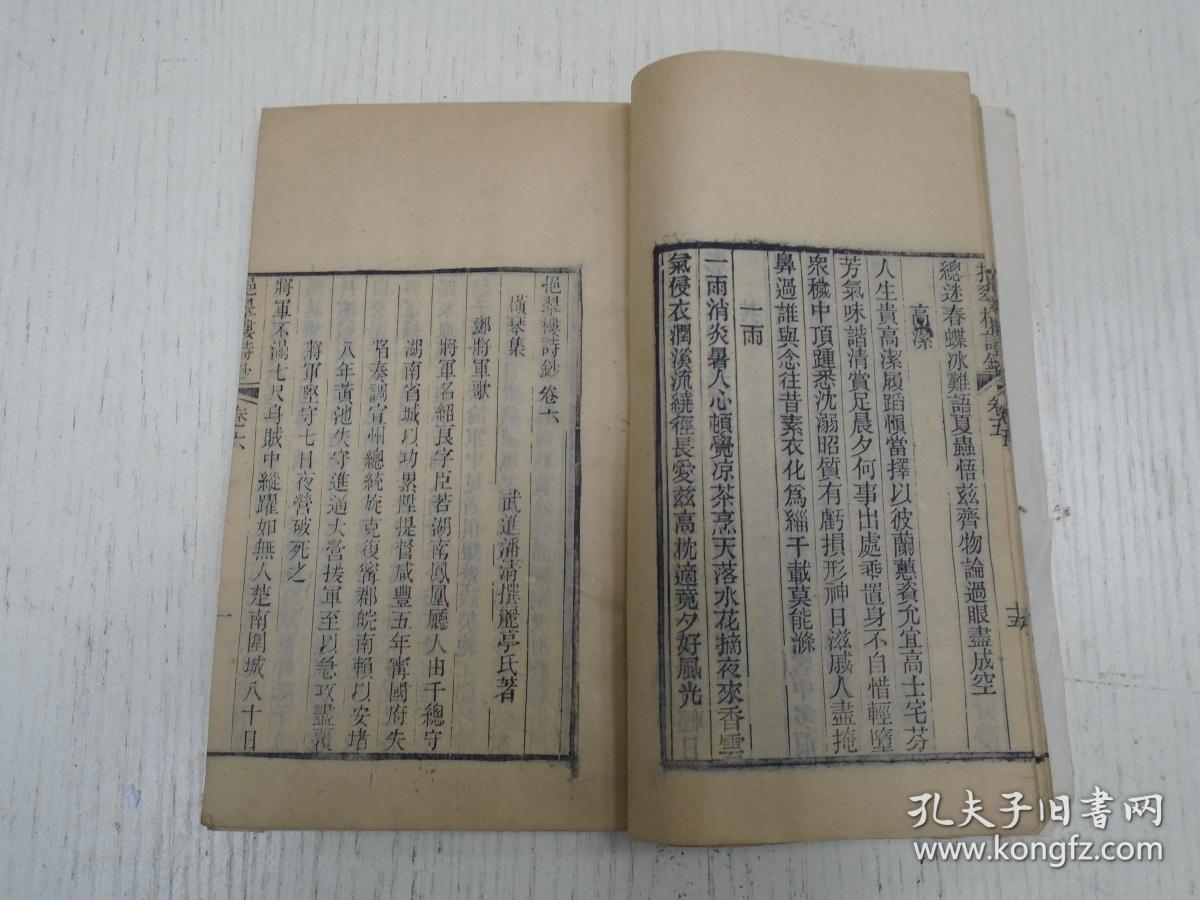 總迷春蝶冰難語夏蟲悟茲齊物論過眼盡成空
高潔
人生貴高潔履蹈愼當擇以彼蘭蕙資允宜高士宅芬
芳氣味諧清賞足晨夕何事出處乖置身不自惜輕墮
衆穢中頂踵悉沈溺昭質有虧損形神日滋戚人盡掩
鼻過誰與念往昔素衣化爲緇千載莫能滌
一雨
一雨消炎暑人心頓覺涼茶烹天落水花摘夜來香雲
氣侵衣潤溪流繞徑長愛茲高枕適竟夕好風光
卷五
十五
挹翠樓詩鈔卷六
橫琴集
武進潘清撰麗亭氏著
鄧將軍歌
將軍名紹良字臣若湖南鳳凰廳人由千總守
湖南省城以功累陞提督咸豐五年甯國府失
陷奏調宣州總統旋克復甯郡皖南賴以安堵
八年黃池失守進逼大營援軍至以急攻盡覆
將軍堅守七日夜營破死之
將軍不滿七尺身賊中縱躍如無人楚南圍城八十日
挹翠樓詩鈔
卷六
一
孔夫子旧书网
www.kongfz.com